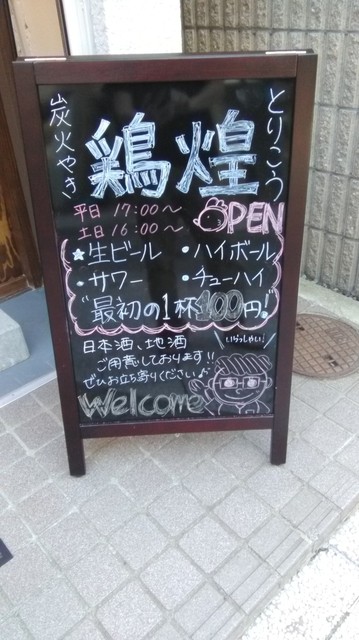 とりこう
鶏煌
炭火やき
平日 17:00〜
土日 16:00〜
OPEN
★生ビール ・ハイボール
・サワー ・チューハイ
"最初の1杯100円!"
日本酒、地酒
ご用意しております!!
ぜひお立ち寄りください♪
いらっしゃい!
Welcome